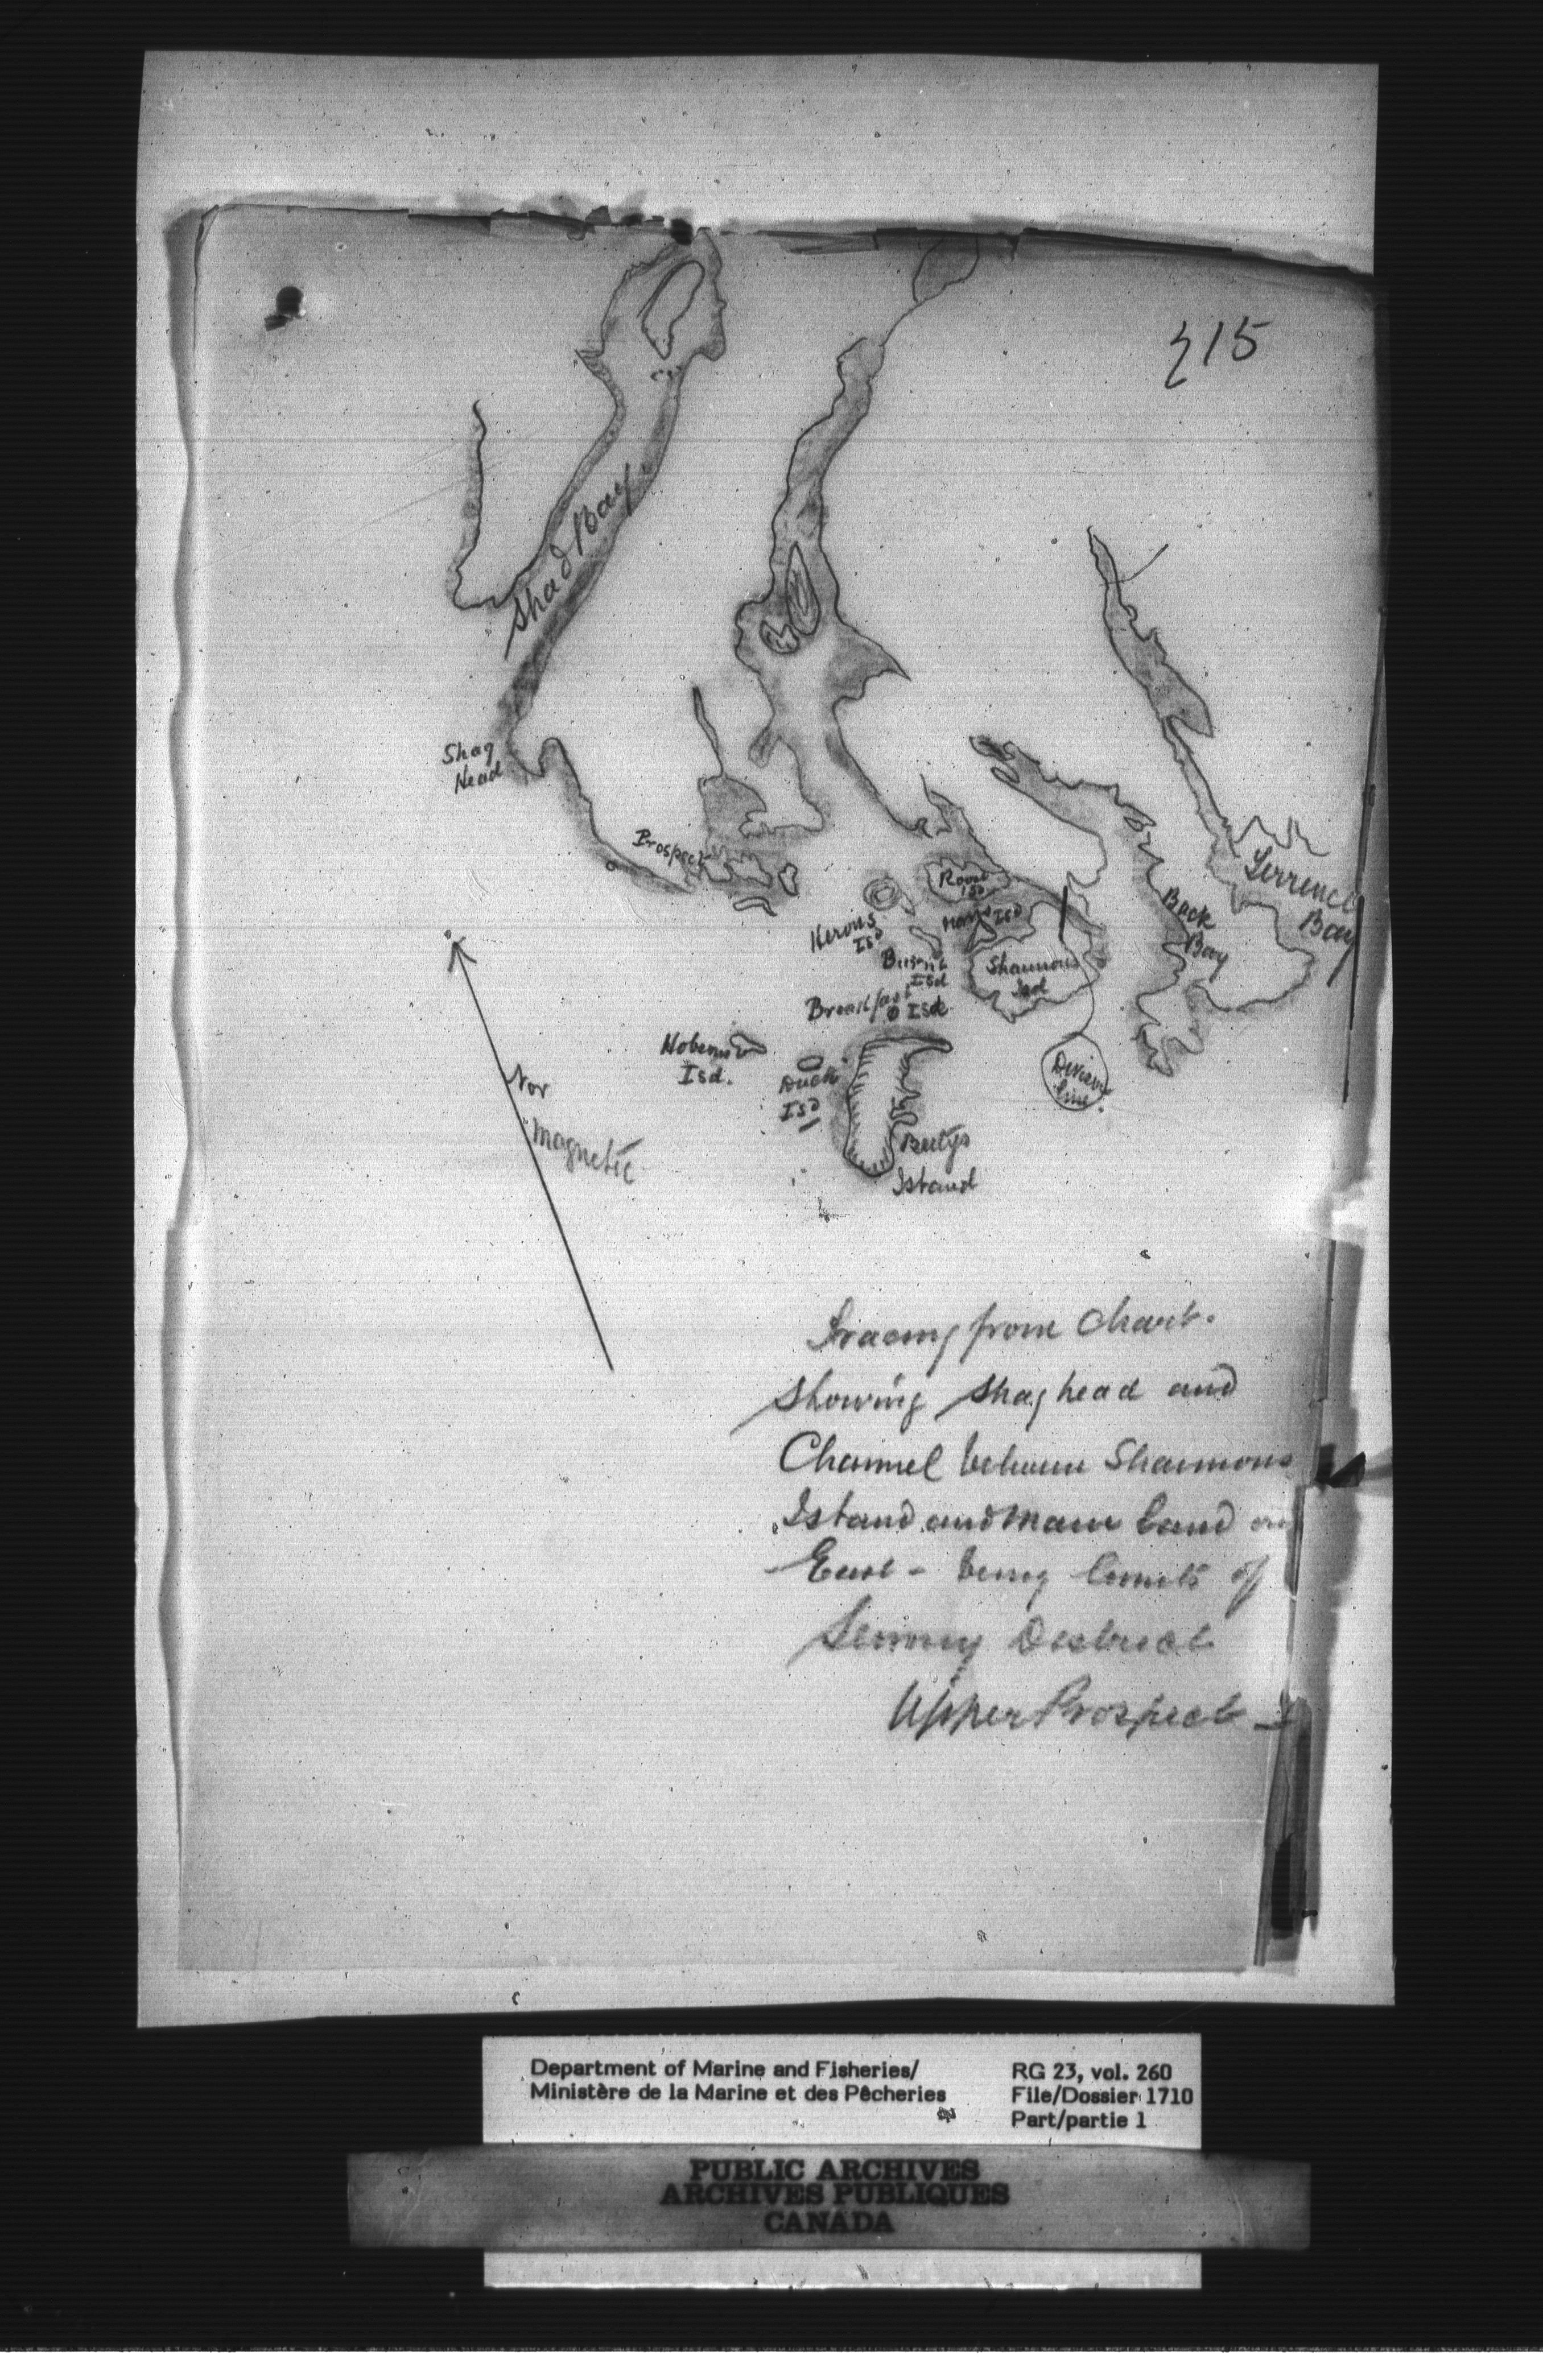 215
Shad Bay
Shag
Head
Prospect
Roost
Isd
Isd
Herons
Isd
Burnt
Isd
Breakfast
Isd
Shannons
Isd
Back
Bay
Terrence
Bay
Hobsons
Isd.
Duck
Isd
Division
line.
Betty's
Island
Nor
magnetic
Tracing from Chart.
showing Shag head and
Channel between Shannons
Island and Main Land on
East - being limits of
District
Upper Prospect
Department of Marine and Fisheries/
Ministère de la Marine et des Pêcheries
RG 23, vol. 260
File/Dossier 1710
Part/partie 1
PUBLIC ARCHIVES
ARCHIVES PUBLIQUES
CANADA